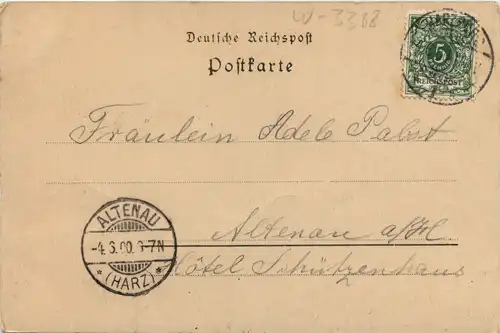 W-3318
Deutsche Reichspost
Postkarte
5
REICHSPOST
Fräulein Adele Pabst
Altenau a/H.
Hôtel Schützenhaus
ALTENAU
-4.6.00.6-7N
* (HARZ) *